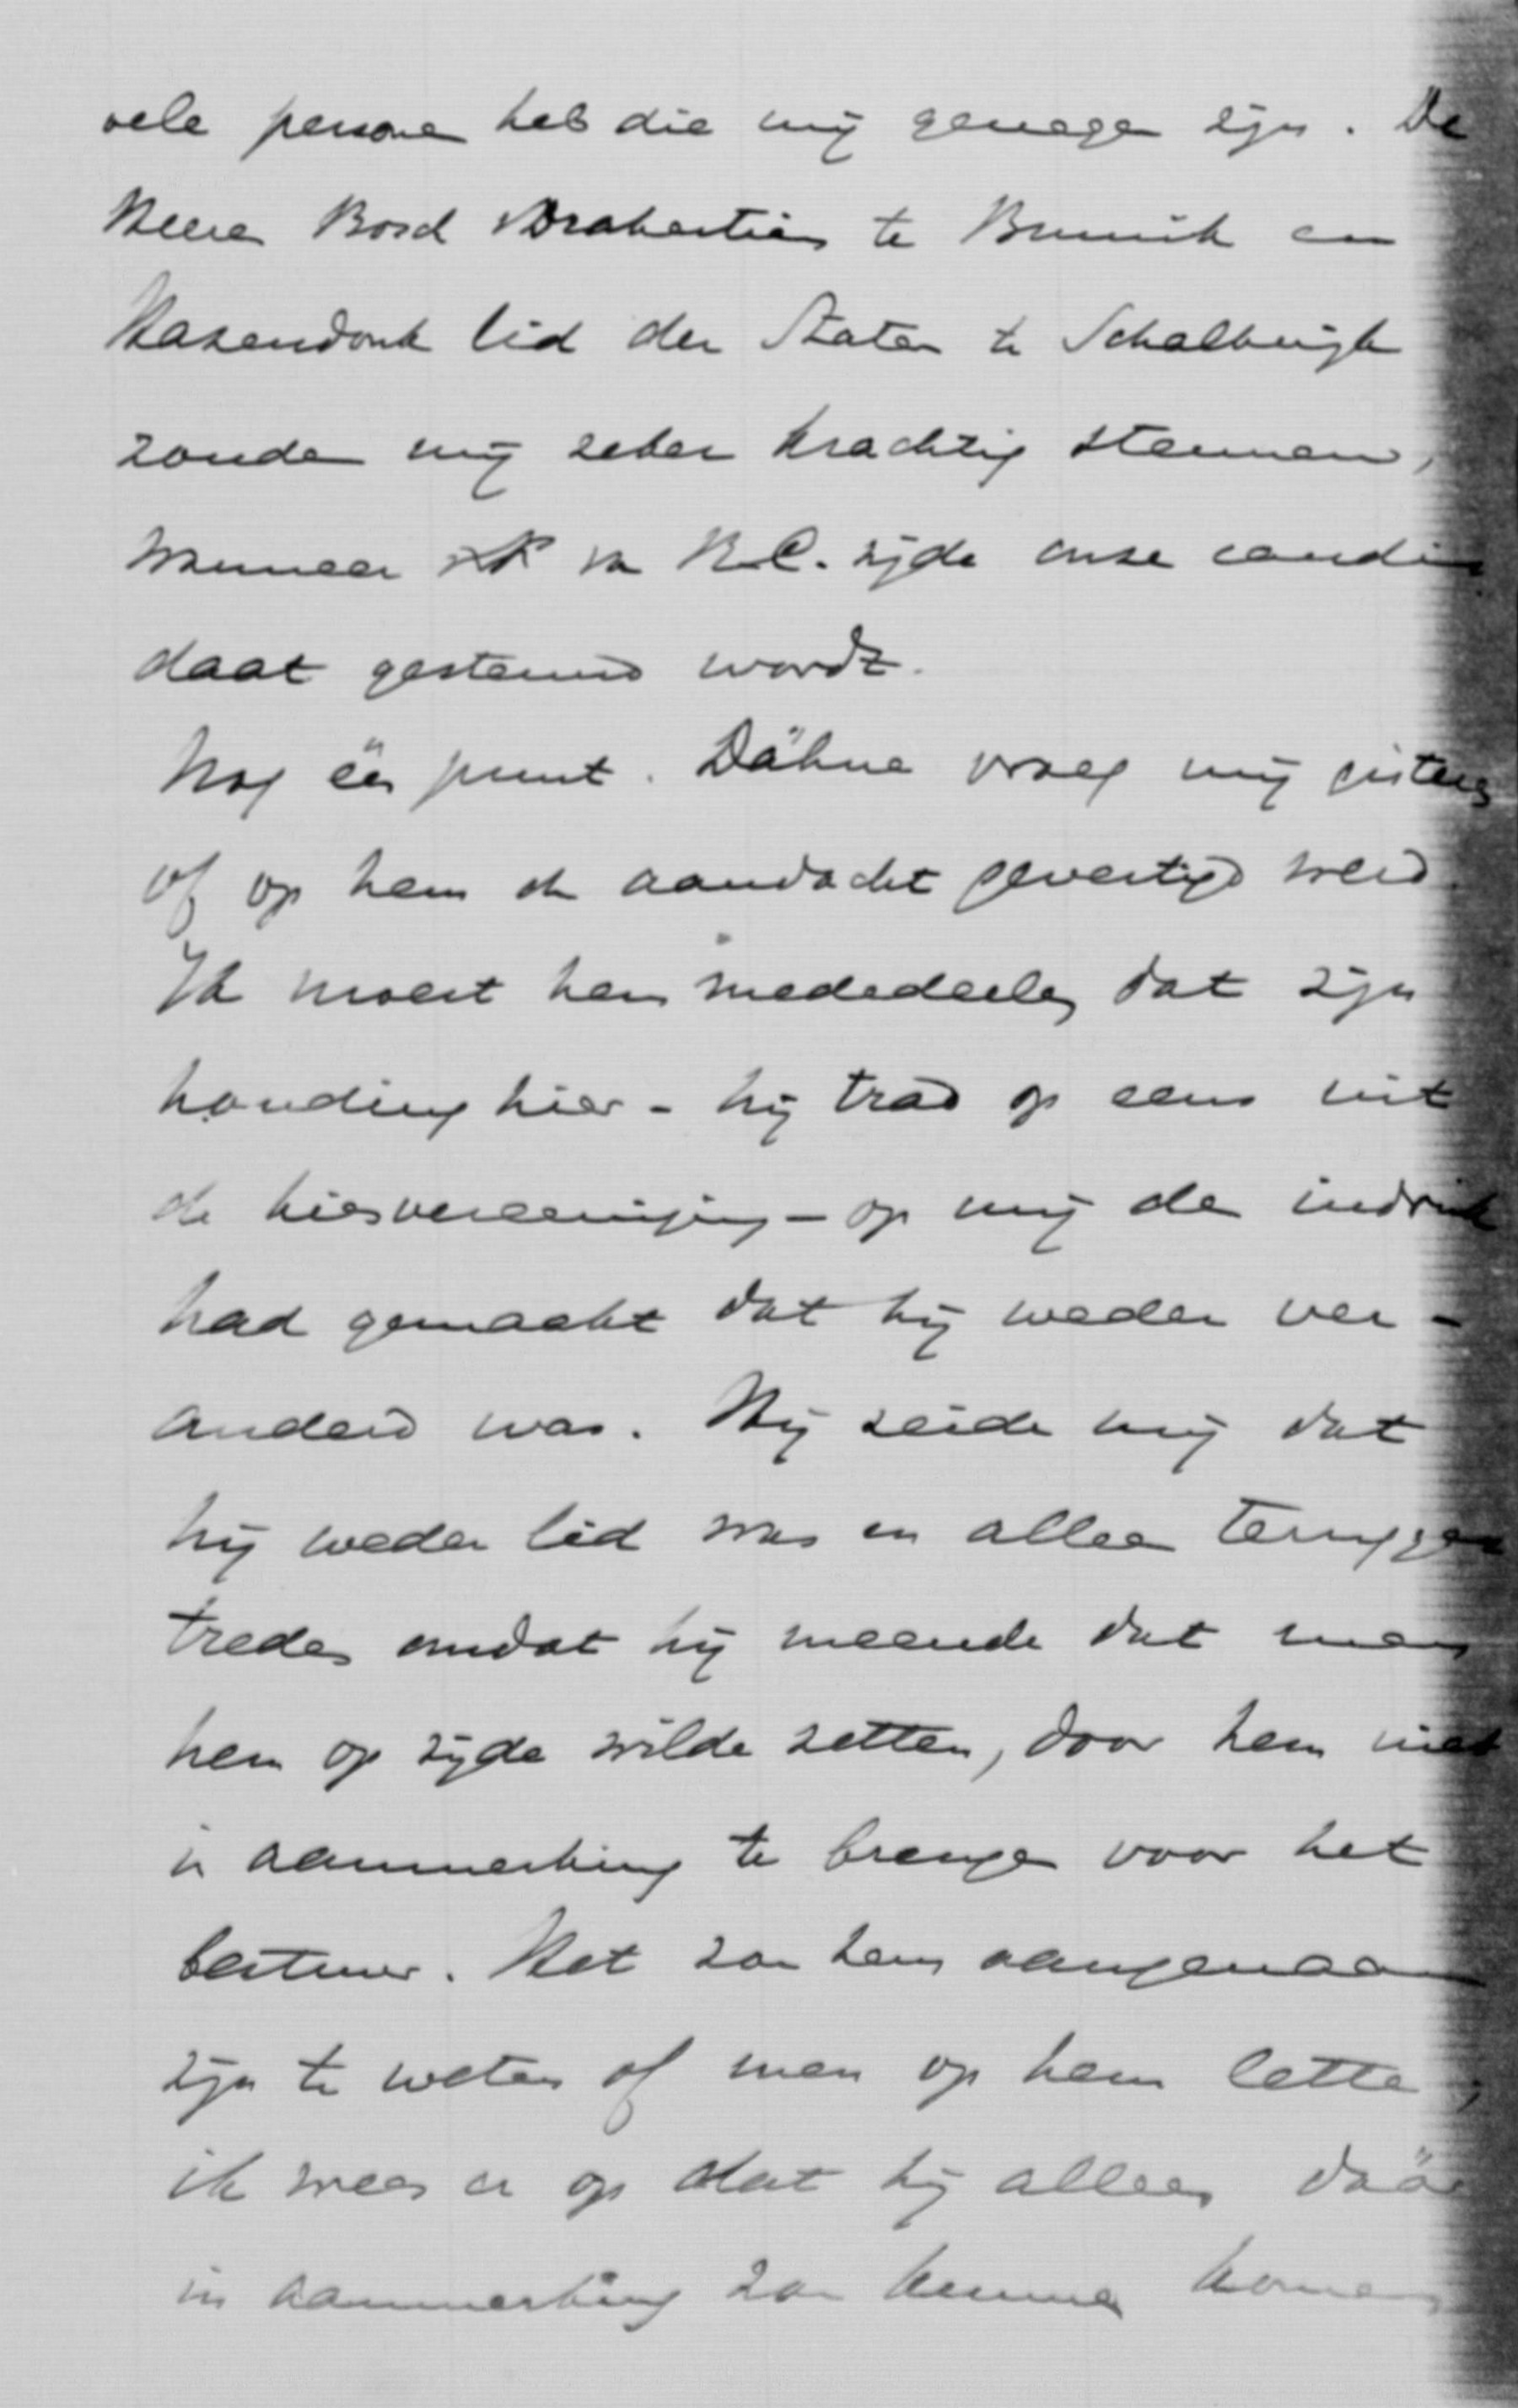 vele personen heb die mij genegen zijn. De
Heeren Bosch te Bunnik en
Hasendonk lid der Staten te Schalkwijk
zouden mij zeker krachtig steunen,
wanneer van R.C. zijde onze candi
daat gesteund wordt.
Nog één punt. Dähne vroeg mij gisteren
of op hem de aandacht gevestigd werd.
Ik moest hem mededeelen dat zijn
houding hier - hij trad op eens uit
de kiesvereeniging - op mij den indruk
had gemaakt dat hij weder ver-
anderd was. Hij zeide mij dat
hij weder lid was en alleen terugge
treden omdat hij meende dat men
hem op zijde wilde zetten, door hem niet
in aanmerking te brengen voor het
bestuur. Het zou hem aangenaam
zijn te weten of men op hem lette;
ik wees er op dat hij alleen dáár
in aanmerking zou kunnen komen